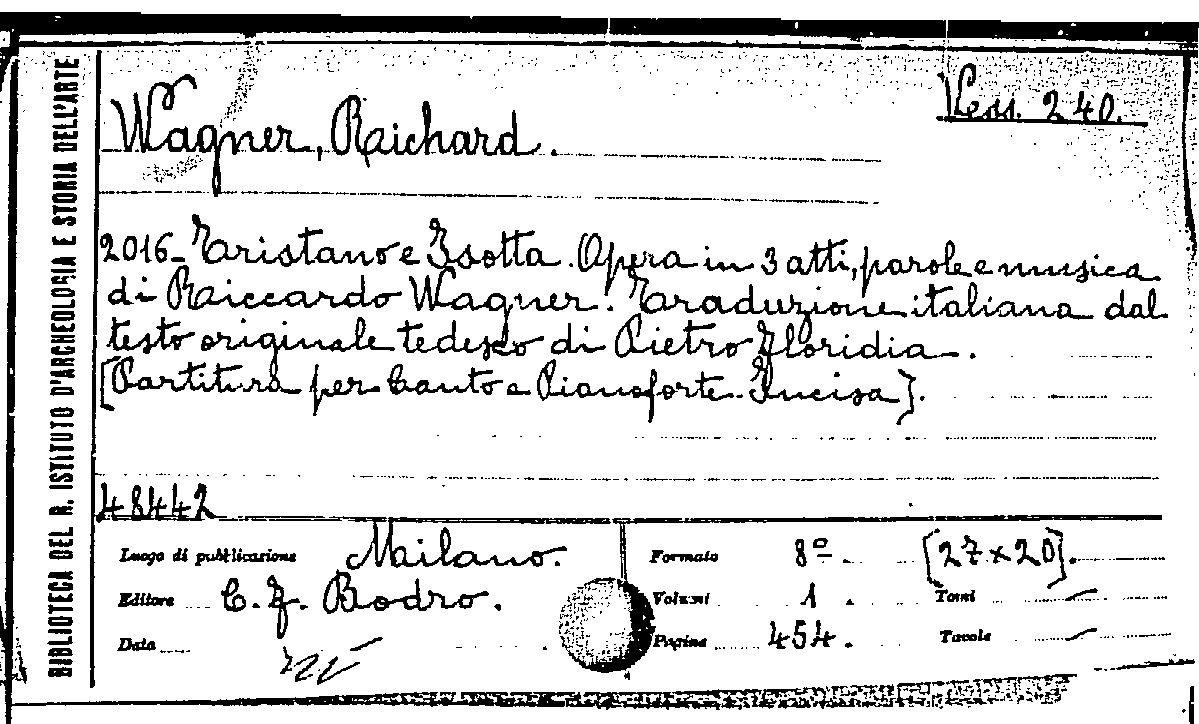 BIBLIOTECA DEL R. ISTITUTO D'ARCHEOLOGIA E STORIA DELL'ARTE
Vess. 240.
Wagner, Richard.
2016- Tristano e Isotta. Opera in 3 atti, parole e musica
di Riccardo Wagner. Traduzione italiana dal
testo originale tedesco di Pietro Floridia.
[Partitura per Canto e Pianoforte. Incisa].
48442
Luogo di pubblicazione Milano. Formato 8º. [27 x 20].
Editore C. F. Bodro. Volumi 1. Tomi —
Data Pagine 454. Tavole —